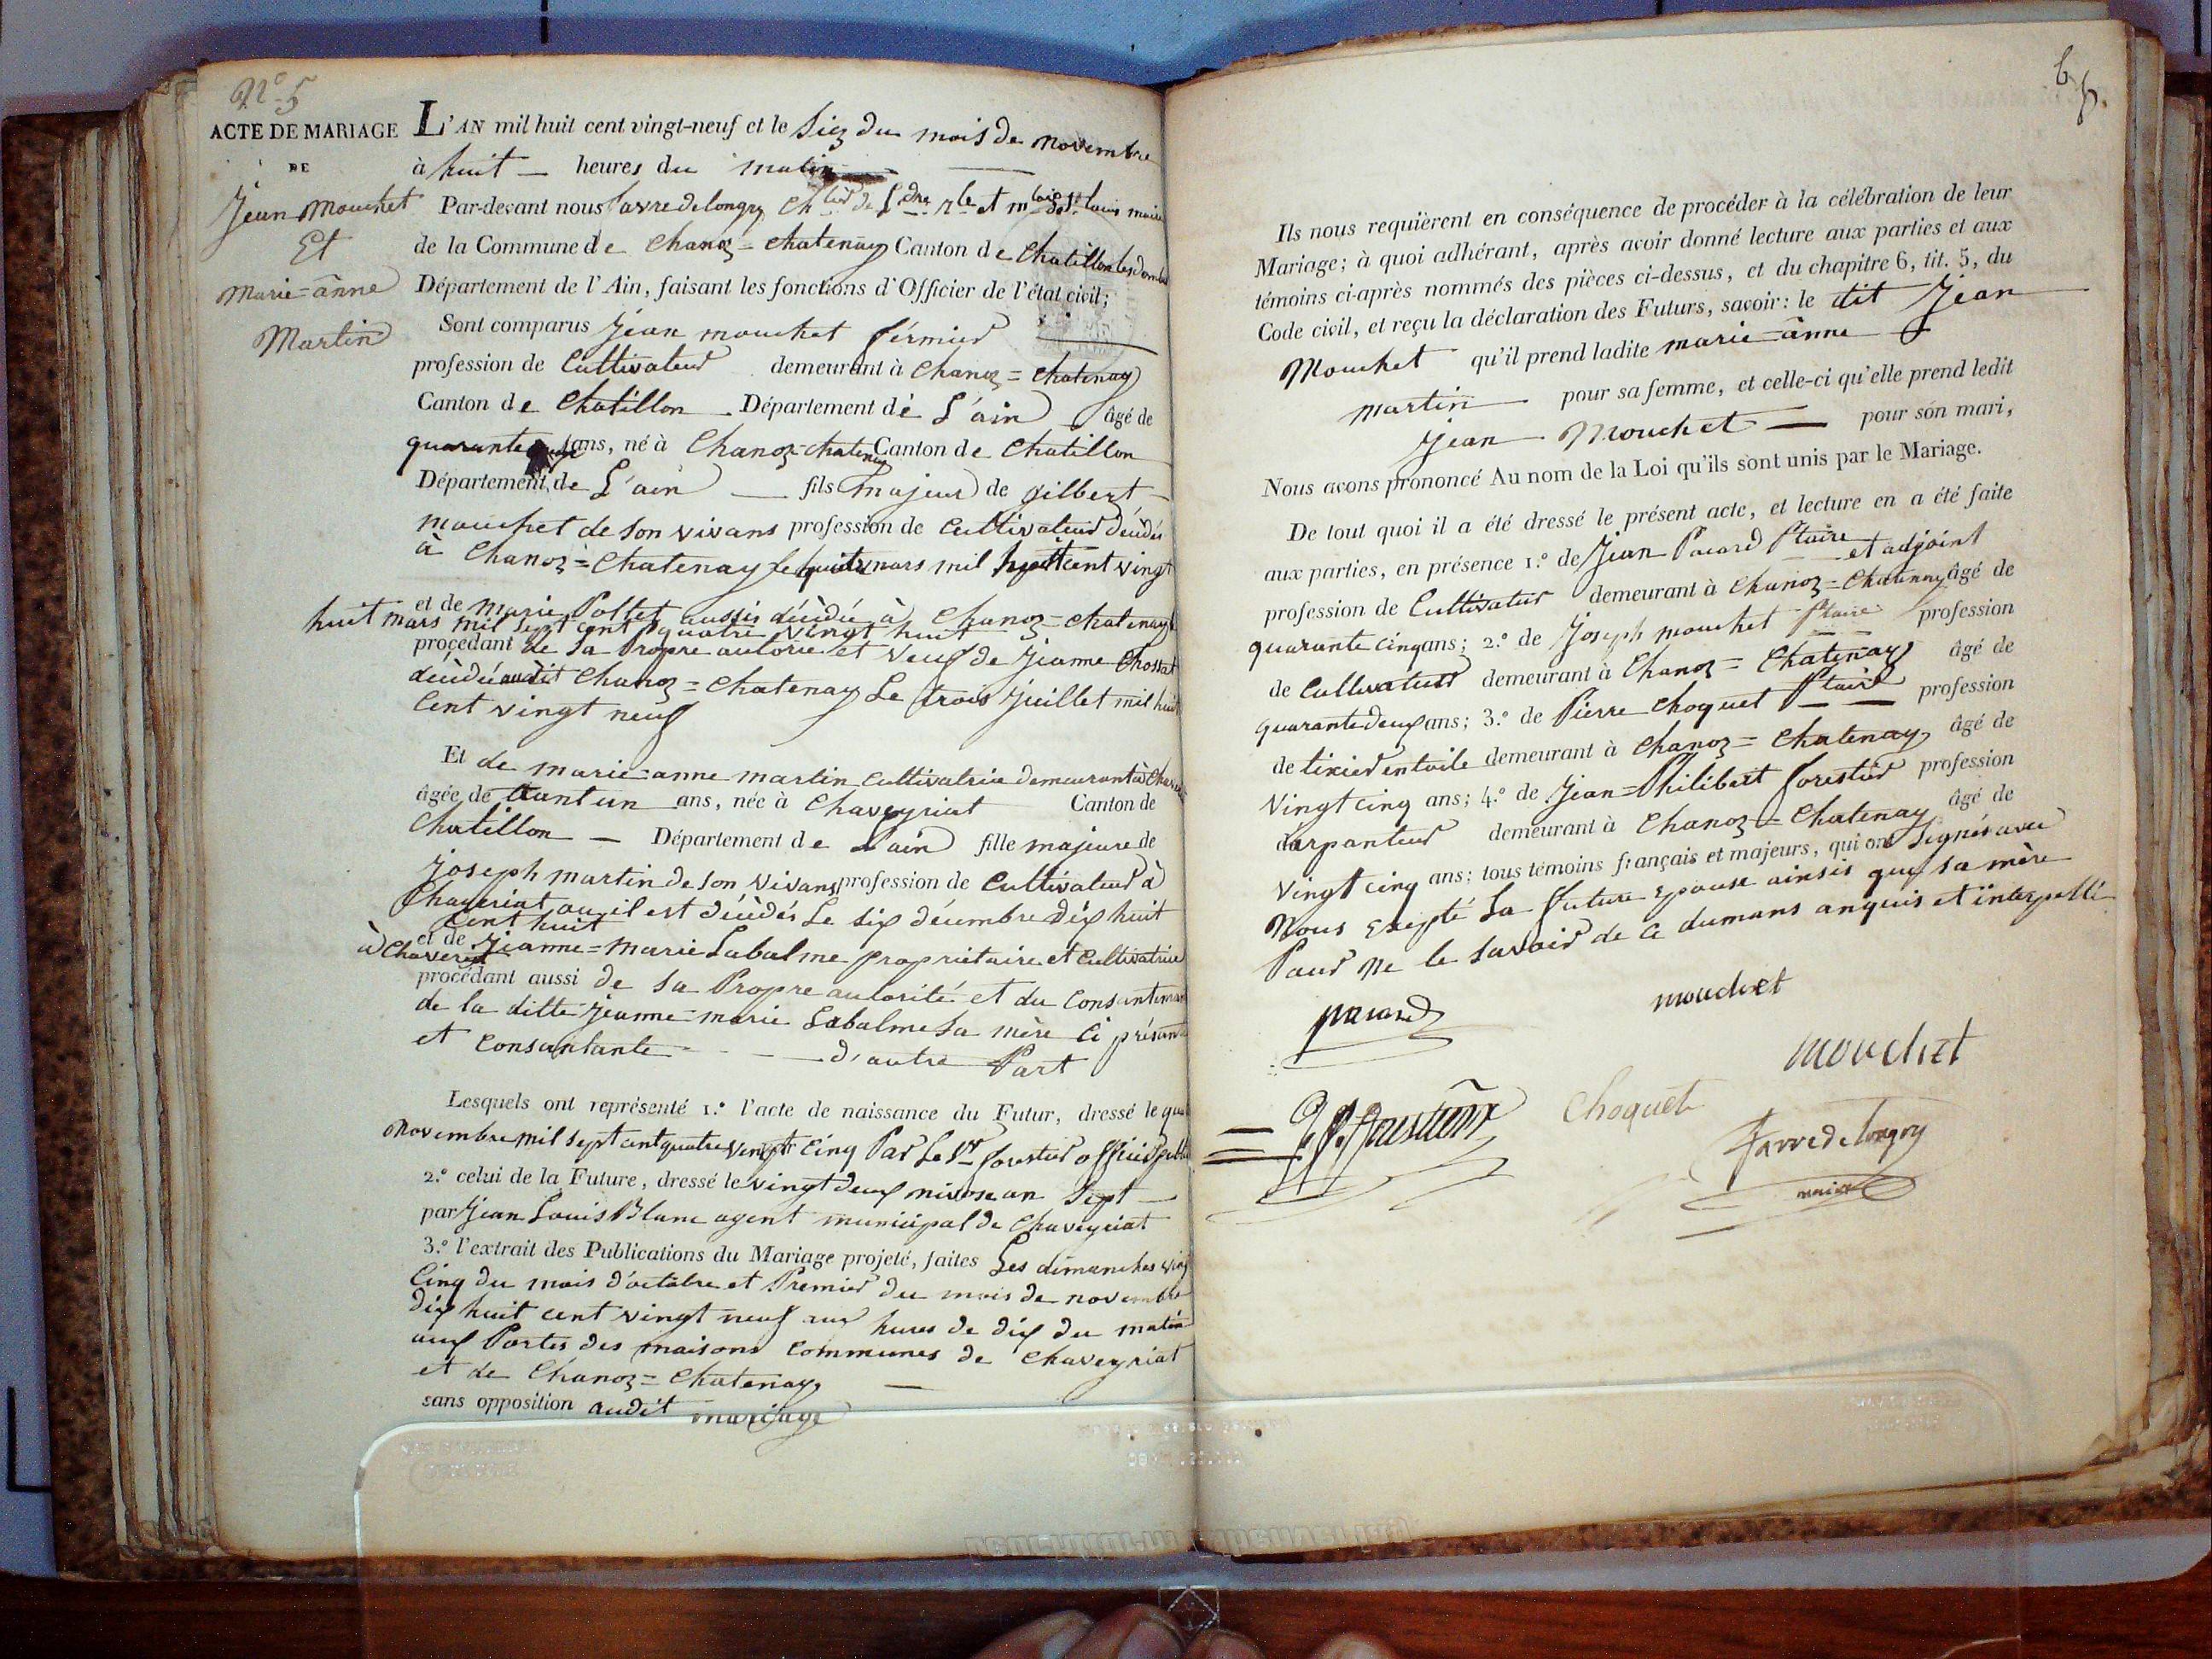 N.º 5
ACTE DE MARIAGE
DE
Jean Mouchet
Et
Marie=ânne
Martin
L'AN mil huit cent vingt-neuf et le Siz du mois de novembre
à huit — heures du matin
Par-devant nous favre de longry Ch.lier de L'dre r.le et m.re de St. louis maire
de la Commune de Chanoz=Chatenay Canton de Chatillon les dombes
Département de l'Ain, faisant les fonctions d'Officier de l'état civil;
Sont comparus Jéan mouchet férmier
profession de Cultivateur demeurant à Chanoz=Chatenay
Canton de Chatillon Département de L'ain âgé de
quarante ans, né à Chanoz=chatenay Canton de Chatillon
Département de L'ain — fils majeur de gilbert
mouchet de son vivans profession de Cultivateur décédés
à Chanoz=Chatenay le huit mars mil huit cent vingt
et de Marie Pollet aussis décédée à Chanoz=chatenay le
huit mars mil sept cent quatre vingt huit
procédant de sa Propre autorie et veuf de Jeanne Chossat
décédée audit Chanoz=Chatenay Le trois Juillet mil huit
Cent vingt neuf
Et de marie-anne martin Cultivatrice demeurant à Chave
âgée de trant un ans, née à Chaveyriat Canton de
Chatillon — Département de L'ain fille majeure de
Joseph martin de son vivans profession de Cultivateur à
Chaveriat ou il est décédés Le six décembre dix huit
Cent huit
et de Jeanne=Marie Labalme propriétaire et Cultivatrice
à Chaveriat
procédant aussi de sa Propre autorité et du Consantement
de la ditte Jeanne=marie Labalme sa mère Ci présante
et Consantante - - - d'autre Part
Lesquels ont représenté 1.º l'acte de naissance du Futur, dressé le
Novembre mil sept cent quatre vingt Cinq Par Le Sr forestier officier public
2.º celui de la Future, dressé le vingt deux nivose an Sept —
par Jean Louis Blanc agent municipal de Chaveyriat
3.º l'extrait des Publications du Mariage projeté, faites Les dimanches vingt
Cinq du mois d'octobre et Premier du mois de novembre
dix huit cent vingt neuf aux hures de dix du matin
aux Portes des maisons Communes de Chaveyriat
et de Chanoz=Chatenay —
sans opposition audit mariage
6
Ils nous requièrent en conséquence de procéder à la célébration de leur
Mariage; à quoi adhérant, après avoir donné lecture aux parties et aux
témoins ci-après nommés des pièces ci-dessus, et du chapitre 6, tit. 5, du
Code civil, et reçu la déclaration des Futurs, savoir: le dit Jean
Mouchet qu'il prend ladite marie=ânne
martin pour sa femme, et celle-ci qu'elle prend ledit
Jean Mouchet — pour son mari,
Nous avons prononcé Au nom de la Loi qu'ils sont unis par le Mariage.
De tout quoi il a été dressé le présent acte, et lecture en a été faite
aux parties, en présence 1.º de Jean Pacard Ptaire et adjoint
profession de Cultivateur demeurant à Chanoz=Chatenay âgé de
quarante cinq ans; 2.º de Joseph mouchet Ptaire profession
de Cultivateur demeurant à Chanoz=Chatenay âgé de
quarante deux ans; 3.º de Pierre Choquet Ptaire profession
de tixier en toile demeurant à Chanoz=Chatenay âgé de
Vingt cinq ans; 4.º de Jean=Philibert forestier profession
darpanteur demeurant à Chanoz=Chatenay âgé de
vingt cinq ans; tous témoins français et majeurs, qui ont signés avec
Nous Exepté La future Epouse ainsis que sa mère
Pour ne le savoir de ce dumans anquis et interpellé
pacard
mouchet
mouchet
J. P. forestier
Choquet
favre de longry
maire